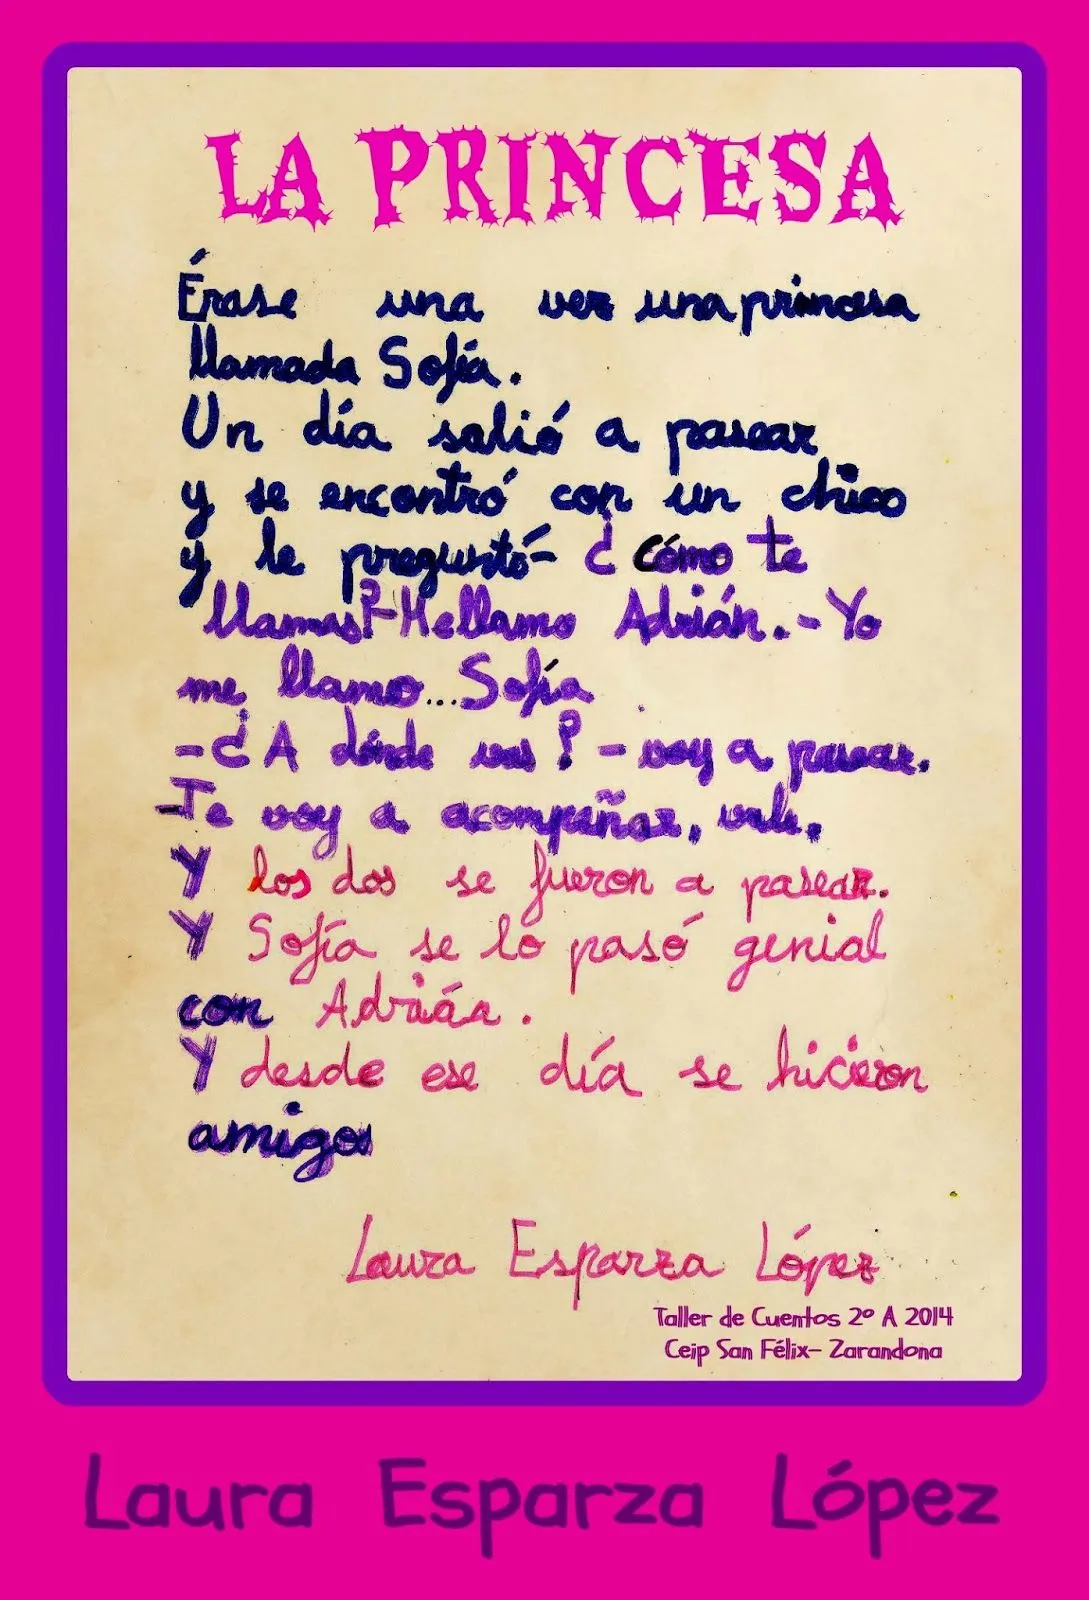 LA PRINCESA
Érase una vez una princesa
llamada Sofía.
Un día salió a pasear
y se encontró con un chico
y le preguntó- ¿ Cómo te
llamas?-Me llamo Adrián.-Yo
me llamo...Sofía
-¿A dónde vas? - voy a pasear.
-Te voy a acompañar, vale.
Y los dos se fueron a pasear.
Y Sofía se lo pasó genial
con Adrián.
Y desde ese día se hicieron
amigos
Laura Esparza López
Taller de Cuentos 2º A 2014
Ceip San Félix- Zarandona
Laura Esparza López